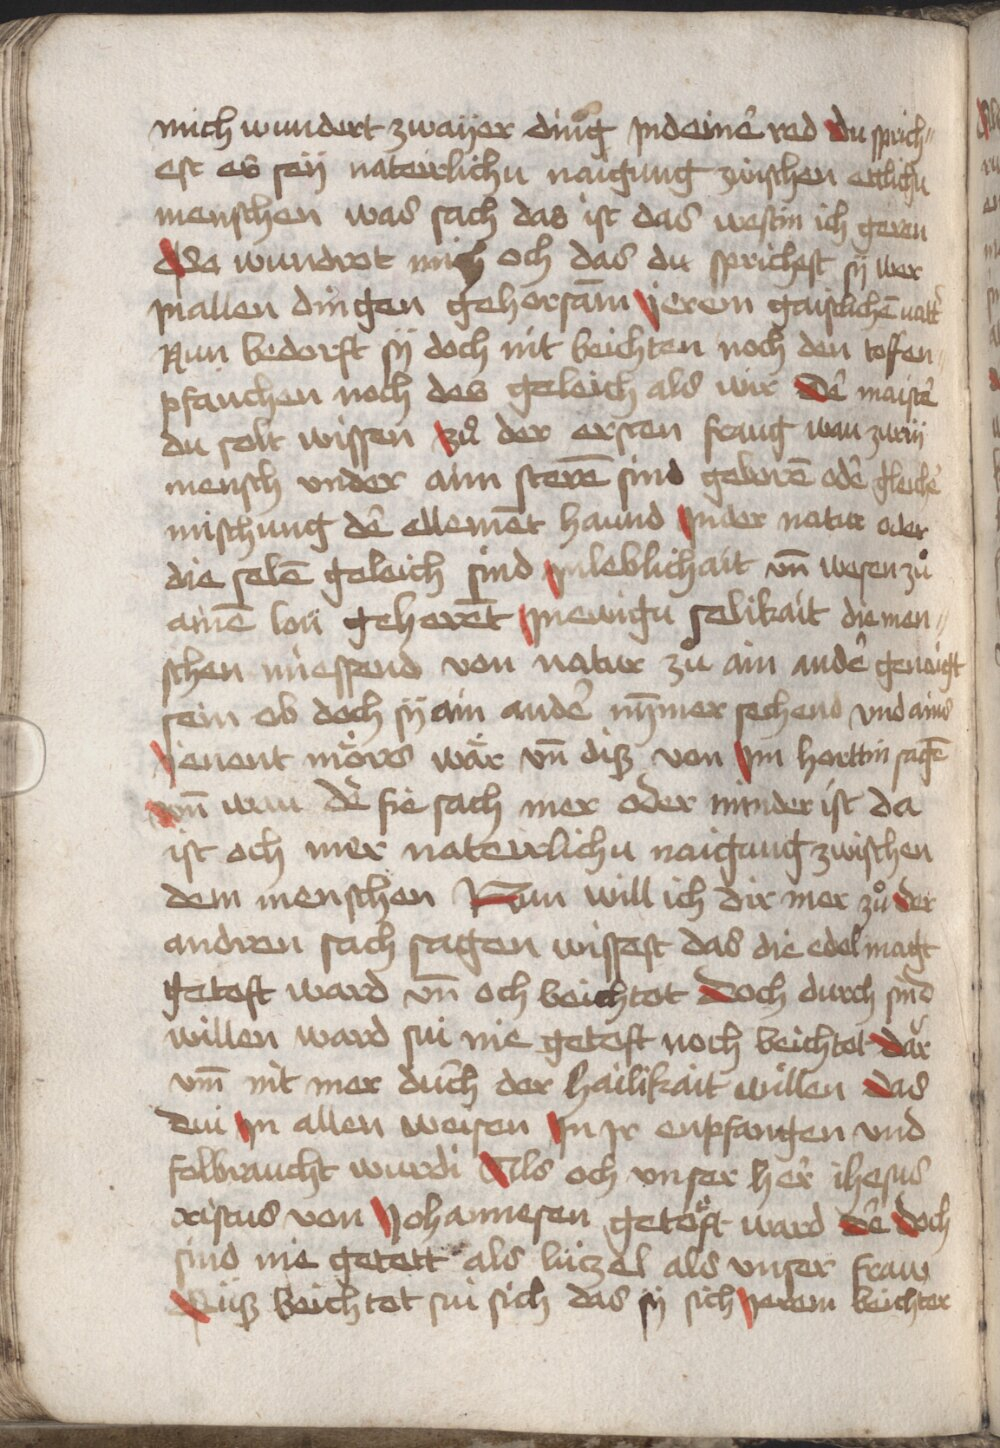 mich wundert zwayer ding jn deinē red du sprich=
est es seÿ nateirlichu naigung zwischen ettlichu
menschen was sach das ist das westin ich geren
Es wundrot mich och das du sprichest sÿ wer
jn allen dingen gehorsām jerem gaistlichē vatt̄
Nun bedorft sÿ doch nit beichten noch den toffen=
pfauchen noch des geleich als wir Dē maistē
du solt wissen zů der ersten fraug wan zwaÿ
mensch vnder aim sterē sind geborē odē gleichē
mischung dē ellemēt haund jn der natur oder
die selē geleich sind jn leblichait vn̄ wesen zů
ainē lon geherēt jn ewigu selikait die men=
schen miessend von natur zů ain andē genaigt
sein ob doch sÿ ain andē nȳmer sechend vnd ains
jenent mörs wär vn̄ diß von jm horttin sagē
vn̄ wan dē sie sach mer oder minder ist da
ist och mer nateirlichu naigung zwischen
dem menschen Nun will ich dir mer zů der
andren sach sagen wissest das die edel magt
getoft ward vn̄ och beichtot Doch durch sind
willen ward sui nie getoft noch beichtet dar
vm̄ nit mer durch der hailikait willen das
dui jn allen weisen jn jr enpfangen vnd
folbraucht wurdi Als och vnser her ihesus
cristus von Johannesen getöft ward dē doch
sind nie getett als lützel als vnser frauw
Diß beichtet sui sich das sÿ sich jerem beichter